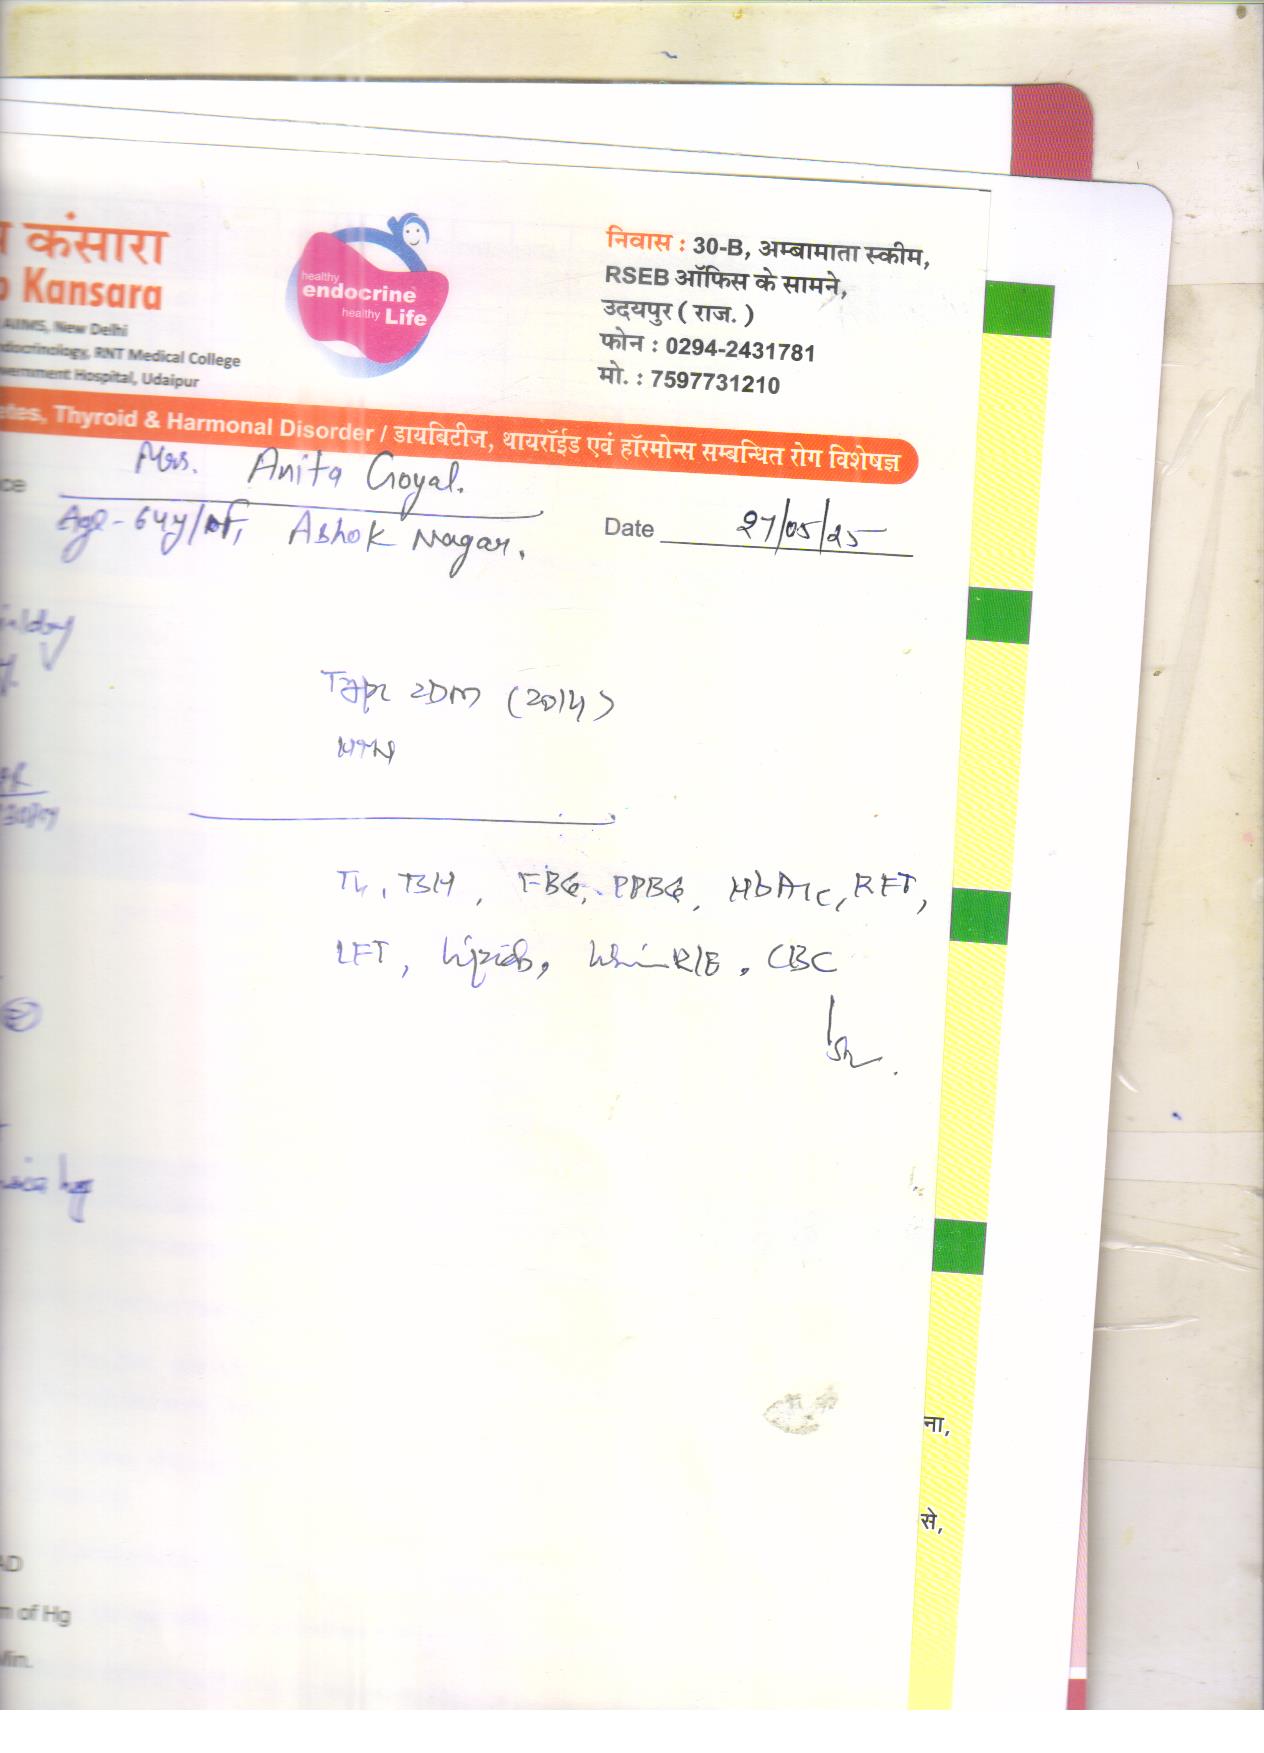 कंसारा
Kansara
AIIMS, New Delhi
docrinology, RNT Medical College
vernment Hospital, Udaipur
healthy
endocrine
healthy Life
निवास : 30-B, अम्बामाता स्कीम,
RSEB ऑफिस के सामने,
उदयपुर ( राज. )
फोन : 0294-2431781
मो. : 7597731210
etes, Thyroid & Harmonal Disorder / डायबिटीज, थायरॉईड एवं हॉरमोन्स सम्बन्धित रोग विशेषज्ञ
Mrs. Anita Goyal.
Age - 64y/F, Ashok Nagar.
Date 27/05/25
Type 2DM (2014)
HTN
T4, TSH, FBG, PPBG, HbA1c, RFT,
LFT, Lipids, Urine R/E, CBC
ना,
से,
AD
m of Hg
Min.